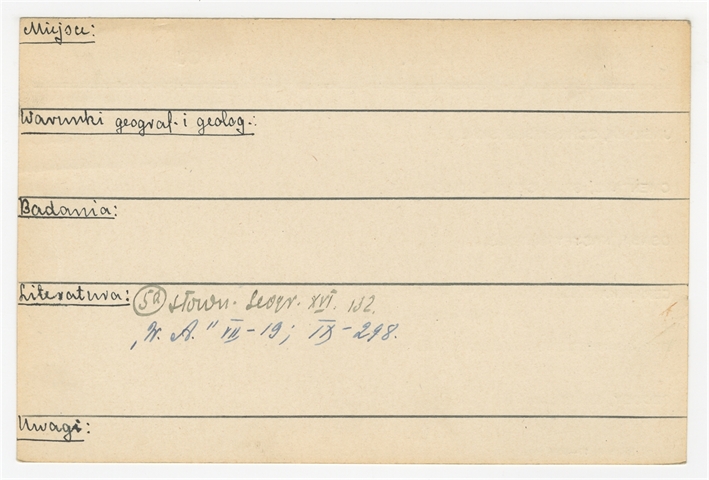 Miejsce:
Warunki geograf. i geolog.:
Badania:
Literatura: 5a Słown. Geogr. XVI. 132.
„W. A." VII-19; IX-298.
Uwagi: